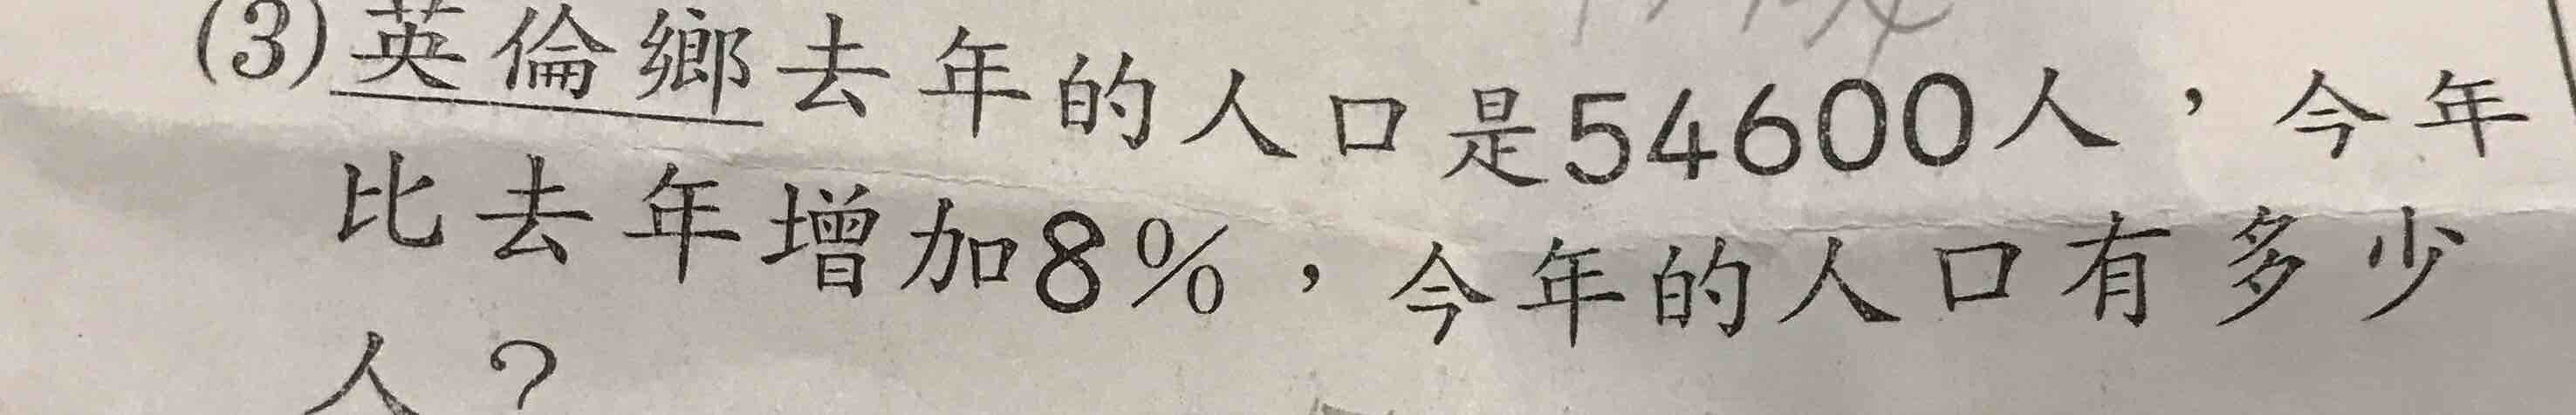 (3)英倫鄉去年的人口是54600人，今年
比去年增加8%，今年的人口有多少
人？